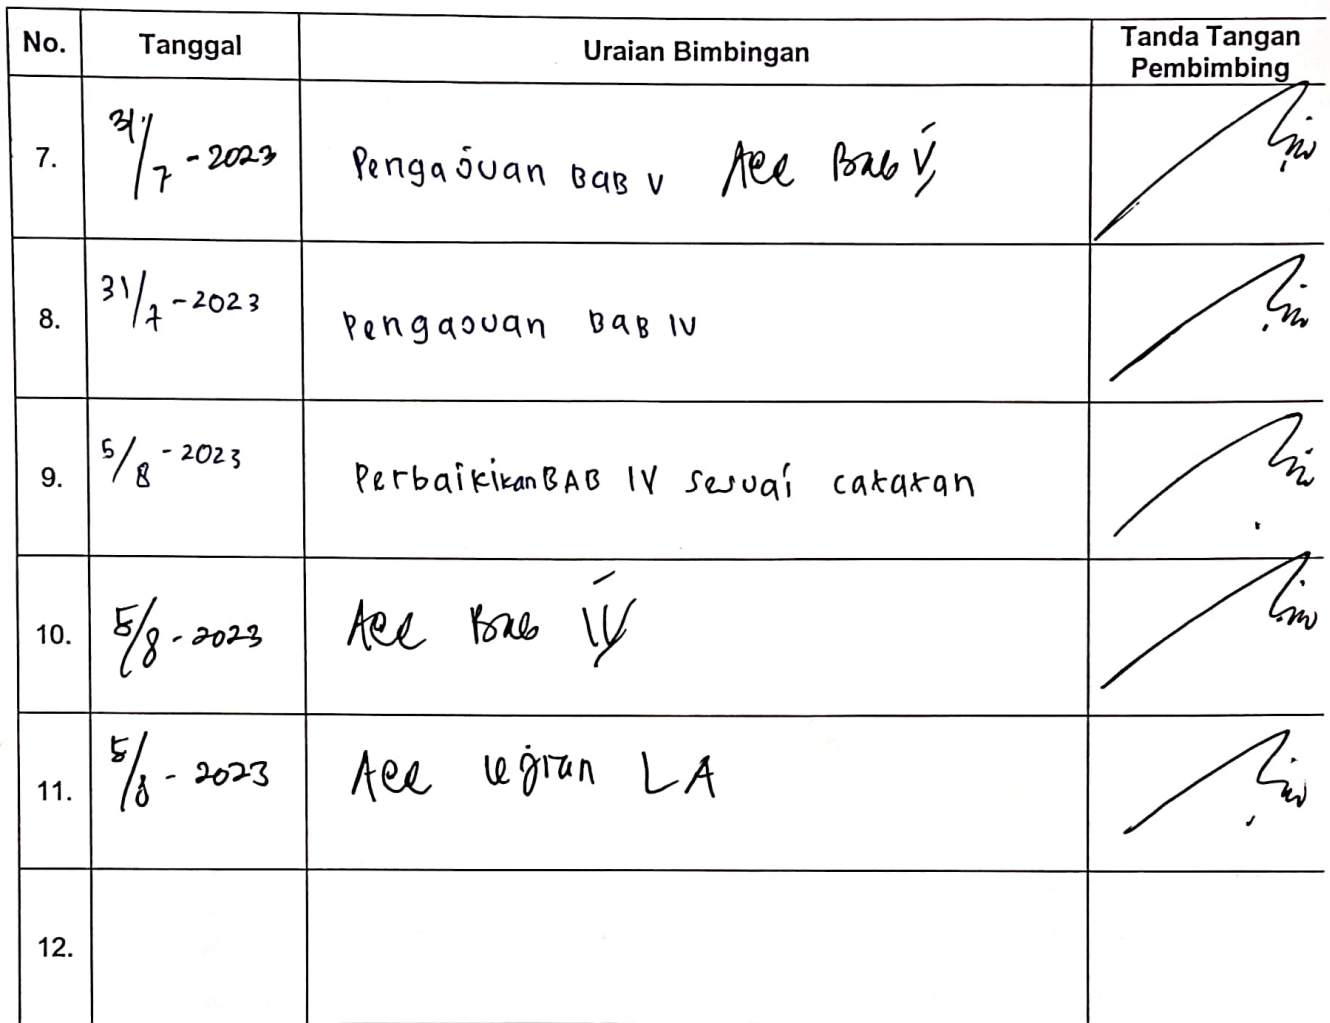 No. Tanggal Uraian Bimbingan Tanda Tangan
Pembimbing
7. 31/7-2023 Pengajuan BAB V Acc Bab V
8. 31/7-2023 Pengajuan BAB IV
9. 5/8-2023 Perbaikikan BAB IV sesuai catatan
10. 5/8-2023 Acc Bab IV
11. 5/8-2023 Acc ujian LA
12.